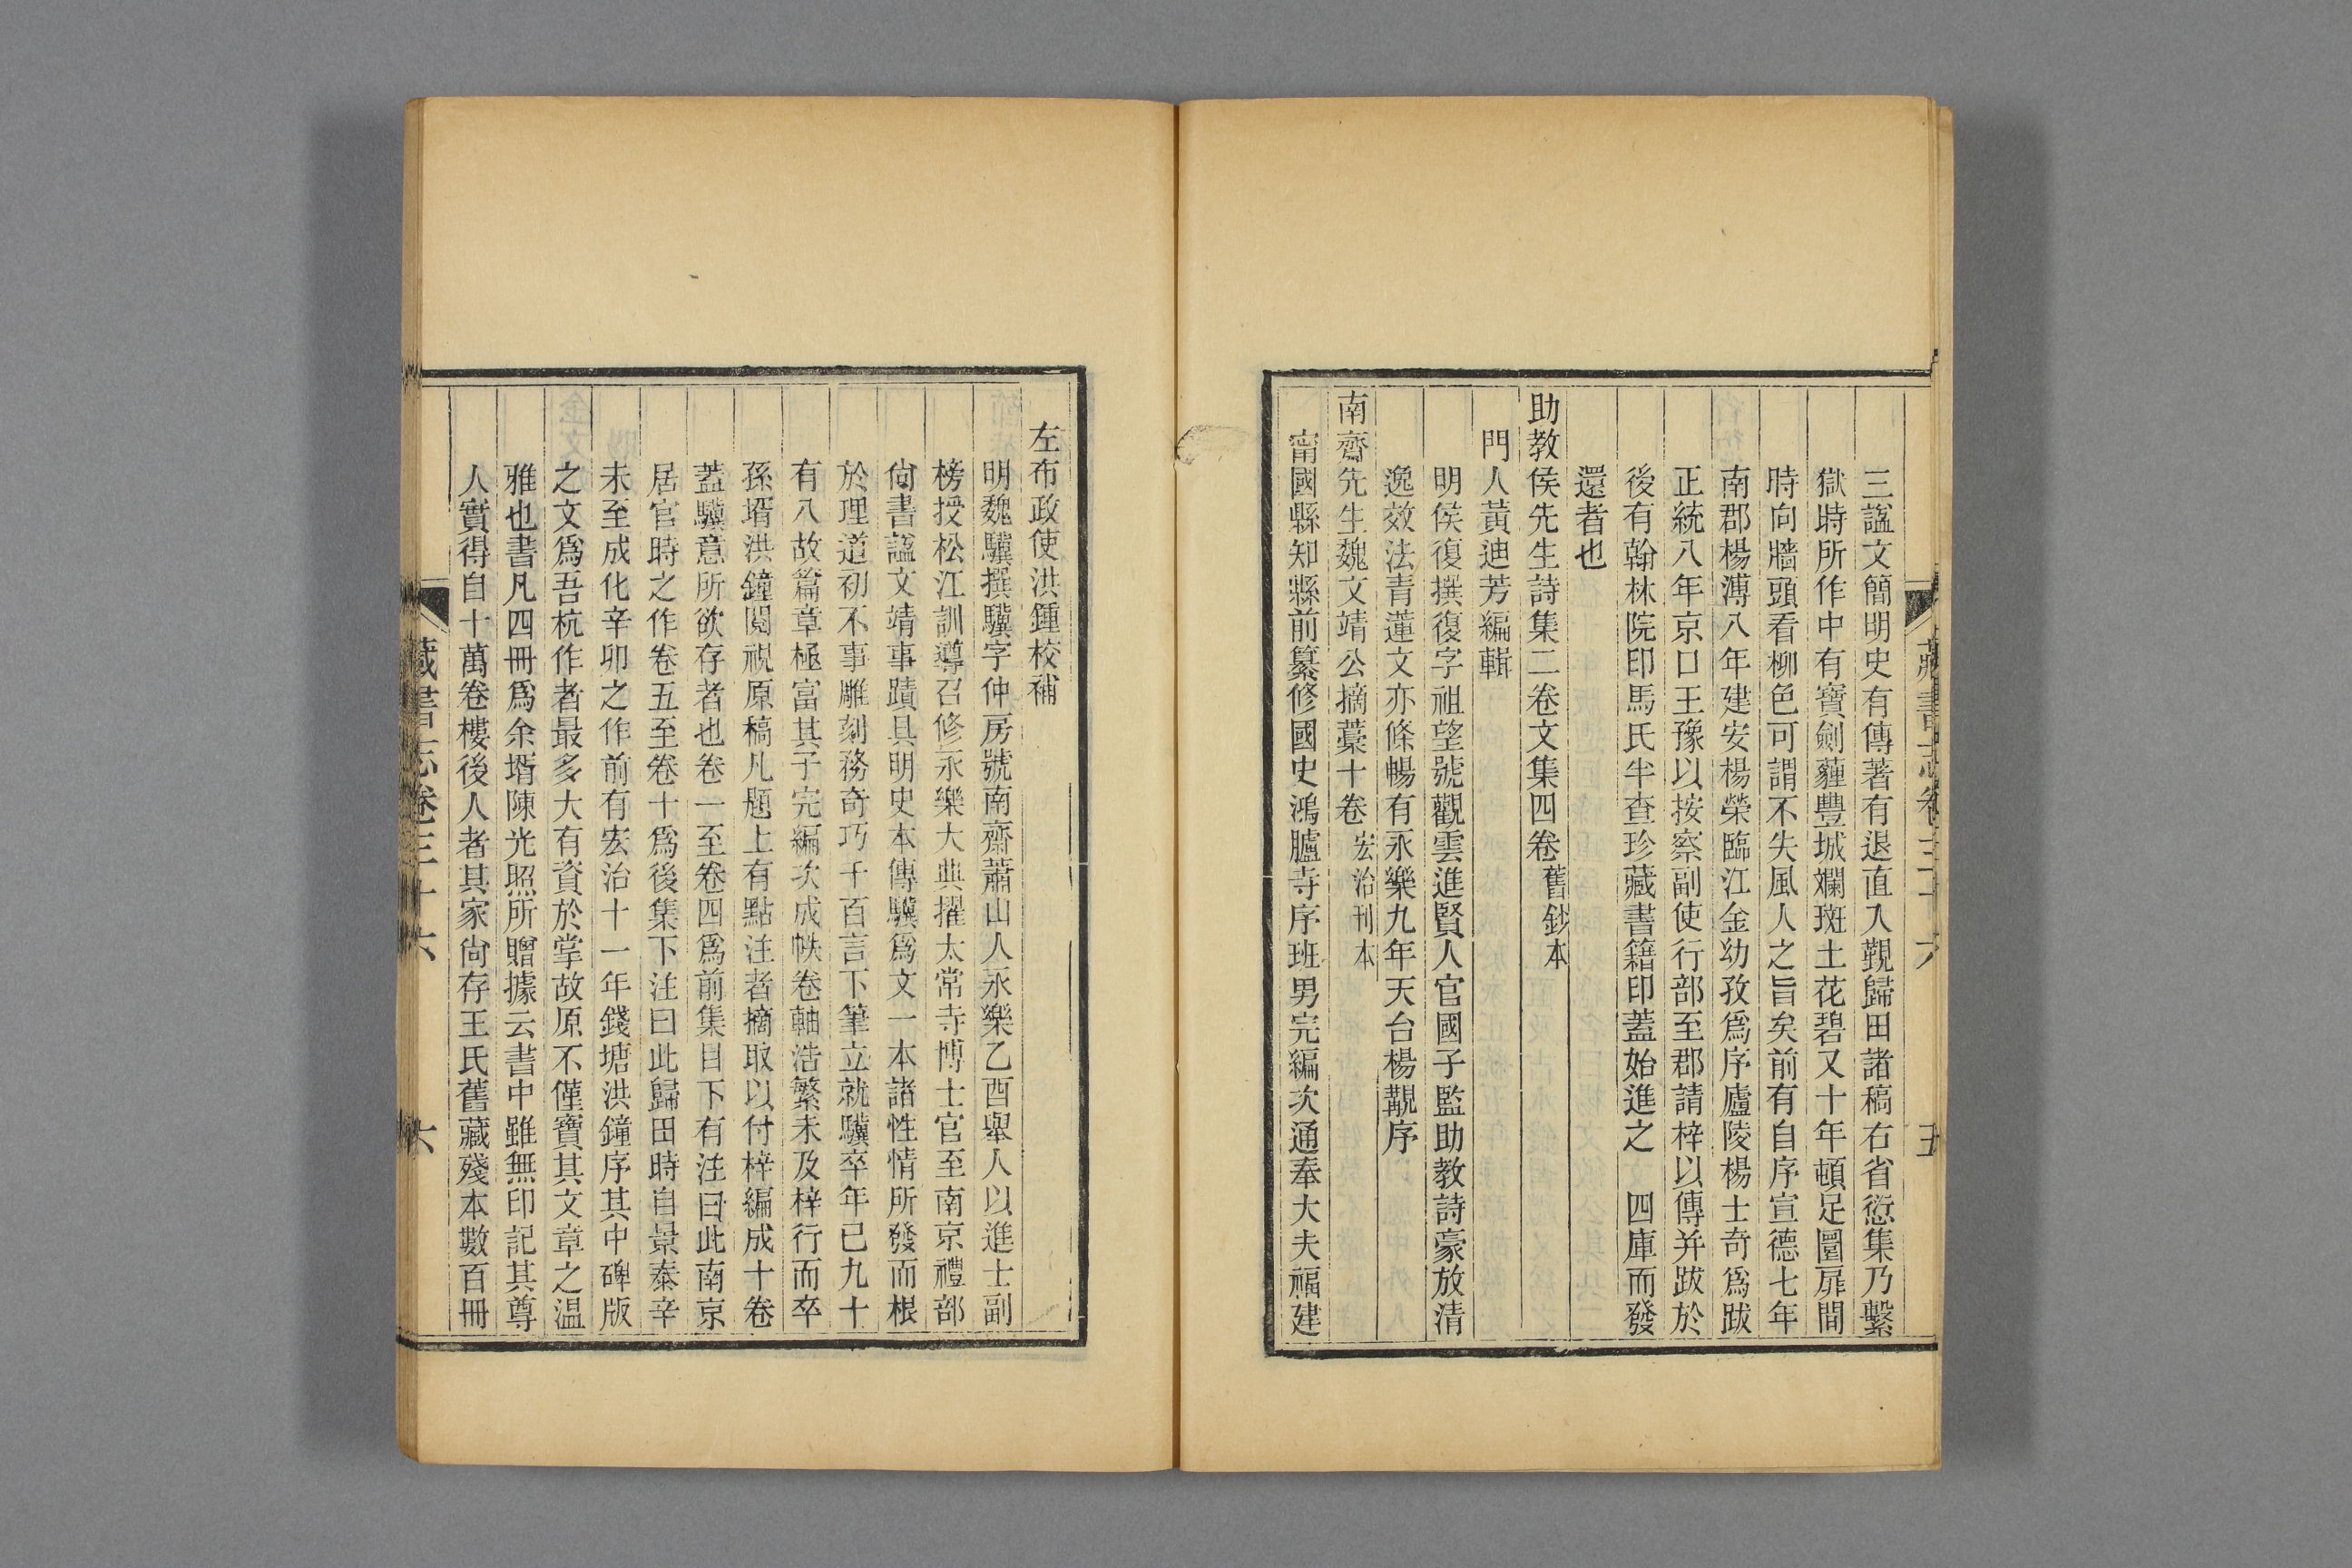 藏書志卷三十六 五
三諡文簡明史有傳著有退直入覲歸田諸稿右省愆集乃繫
獄時所作中有寶劍蘊豐城斕斑土花碧又十年頓足圜扉間
時向牆頭看柳色可謂不失風人之旨矣前有自序宣德七年
南郡楊溥八年建安楊榮臨江金幼孜爲序廬陵楊士奇爲跋
正統八年京口王豫以按察副使行部至郡請梓以傳并跋於
後有翰林院印馬氏半查珍藏書籍印蓋始進之　四庫而發
還者也
助教侯先生詩集二卷文集四卷舊鈔本
門人黃迪芳編輯
明侯復撰復字祖望號觀雲進賢人官國子監助教詩豪放清
逸效法青蓮文亦條暢有永樂九年天台楊覯序
南齊先生魏文靖公摘藁十卷宏治刊本
甯國縣知縣前纂修國史鴻臚寺序班男完編次通奉大夫福建
左布政使洪鍾校補
明魏驥撰驥字仲房號南齋蕭山人永樂乙酉舉人以進士副
榜授松江訓導召修永樂大典擢太常寺博士官至南京禮部
尙書諡文靖事蹟具明史本傳驥爲文一本諸性情所發而根
於理道初不事雕刻務奇巧千百言下筆立就驥卒年已九十
有八故篇章極富其子完編次成帙卷軸浩繁未及梓行而卒
孫壻洪鐘閱視原稿凡題上有點注者摘取以付梓編成十卷
蓋驥意所欲存者也卷一至卷四爲前集目下有注曰此南京
居官時之作卷五至卷十爲後集下注曰此歸田時自景泰辛
未至成化辛卯之作前有宏治十一年錢塘洪鐘序其中碑版
之文爲吾杭作者最多大有資於掌故原不僅寶其文章之温
雅也書凡四冊爲余壻陳光照所贈據云書中雖無印記其尊
人實得自十萬卷樓後人者其家尙存王氏舊藏殘本數百冊
藏書志卷三十六 六